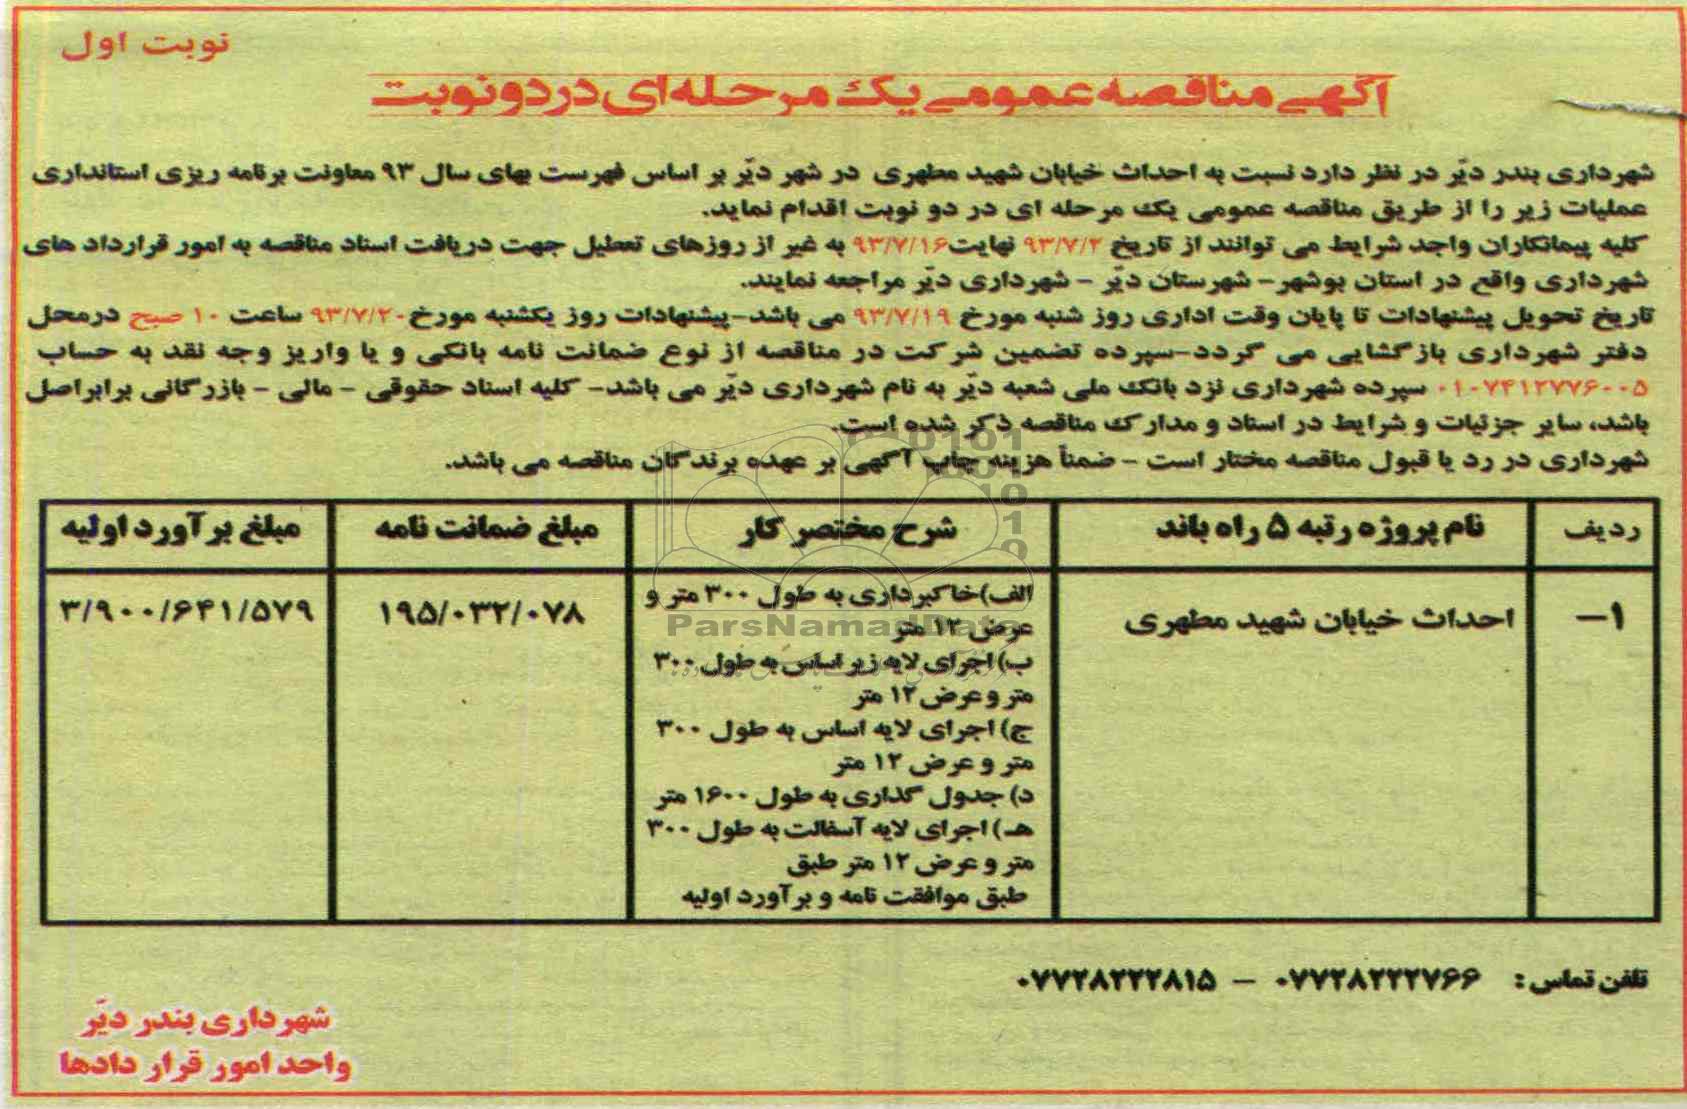 نوبت اول
آگهی مناقصه عمومی یک مرحله ای در دو نوبت
شهرداری بندر دیّر در نظر دارد نسبت به احداث خیابان شهید مطهری در شهر دیّر بر اساس فهرست بهای سال ۹۳ معاونت برنامه ریزی استانداری
عملیات زیر را از طریق مناقصه عمومی یک مرحله ای در دو نوبت اقدام نماید.
کلیه پیمانکاران واجد شرایط می توانند از تاریخ ۹۳/۷/۲ نهایت ۹۳/۷/۱۶ به غیر از روزهای تعطیل جهت دریافت اسناد مناقصه به امور قرارداد های
شهرداری واقع در استان بوشهر- شهرستان دیّر - شهرداری دیّر مراجعه نمایند.
تاریخ تحویل پیشنهادات تا پایان وقت اداری روز شنبه مورخ ۹۳/۷/۱۹ می باشد-پیشنهادات روز یکشنبه مورخ ۹۳/۷/۲۰ ساعت ۱۰ صبح درمحل
دفتر شهرداری بازگشایی می گردد-سپرده تضمین شرکت در مناقصه از نوع ضمانت نامه بانکی و یا واریز وجه نقد به حساب
۰۱۰۷۴۱۲۷۷۶۰۰۵ سپرده شهرداری نزد بانک ملی شعبه دیّر به نام شهرداری دیّر می باشد- کلیه اسناد حقوقی - مالی - بازرگانی برابراصل
باشد، سایر جزئیات و شرایط در اسناد و مدارک مناقصه ذکر شده است.
شهرداری در رد یا قبول مناقصه مختار است - ضمناً هزینه چاپ آگهی بر عهده برندگان مناقصه می باشد.
ردیف نام پروژه رتبه ۵ راه باند شرح مختصر کار مبلغ ضمانت نامه مبلغ برآورد اولیه
۱- احداث خیابان شهید مطهری ۱۹۵/۰۳۲/۰۷۸ ۳/۹۰۰/۶۴۱/۵۷۹
الف)خاکبرداری به طول ۳۰۰ متر و
عرض ۱۲ متر
ب) اجرای لایه زیر اساس به طول ۳۰۰
متر و عرض ۱۲ متر
ج) اجرای لایه اساس به طول ۳۰۰
متر و عرض ۱۲ متر
د) جدول گذاری به طول ۱۶۰۰ متر
هـ) اجرای لایه آسفالت به طول ۳۰۰
متر و عرض ۱۲ متر طبق
طبق موافقت نامه و برآورد اولیه
ParsNamadData
تلفن تماس: ۰۷۷۲۸۲۲۲۷۶۶ - ۰۷۷۲۸۲۲۲۸۱۵
شهرداری بندر دیّر
واحد امور قرار دادها